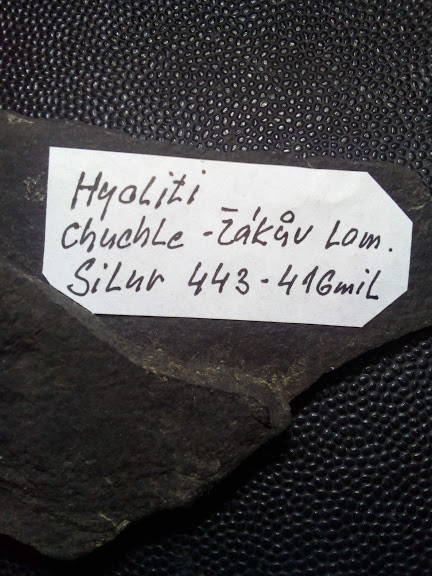 Hyoliti
Chuchle - Žákův Lom.
Silur 443-416mil